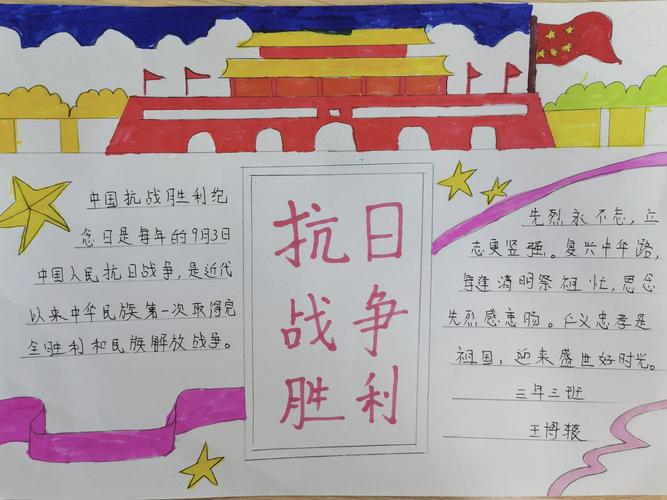 中国抗战胜利纪
念日是每年的9月3日
中国人民抗日战争,是近代
以来中华民族第一次取得完
全胜利和民族解放战争。
抗日
战争
胜利
先烈永不忘,立
志更坚强。复兴中华路,
每逢清明祭祖忙,思念
先烈感恩肠。仁义忠孝是
祖国,迎来盛世好时光。
三年三班
王博